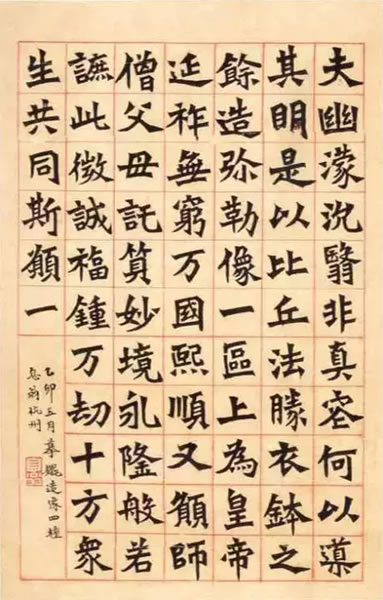 夫幽濛沉翳非真容何以導
其明是以比丘法勝衣鉢之
餘造弥勒像一區上為皇帝
延祚無窮万國熙順又願師
僧父母託質妙境永隆般若
謶此微誠福鍾万劫十方衆
生共同斯願一
乙卯五月摹魏造像四種
息翁杭州